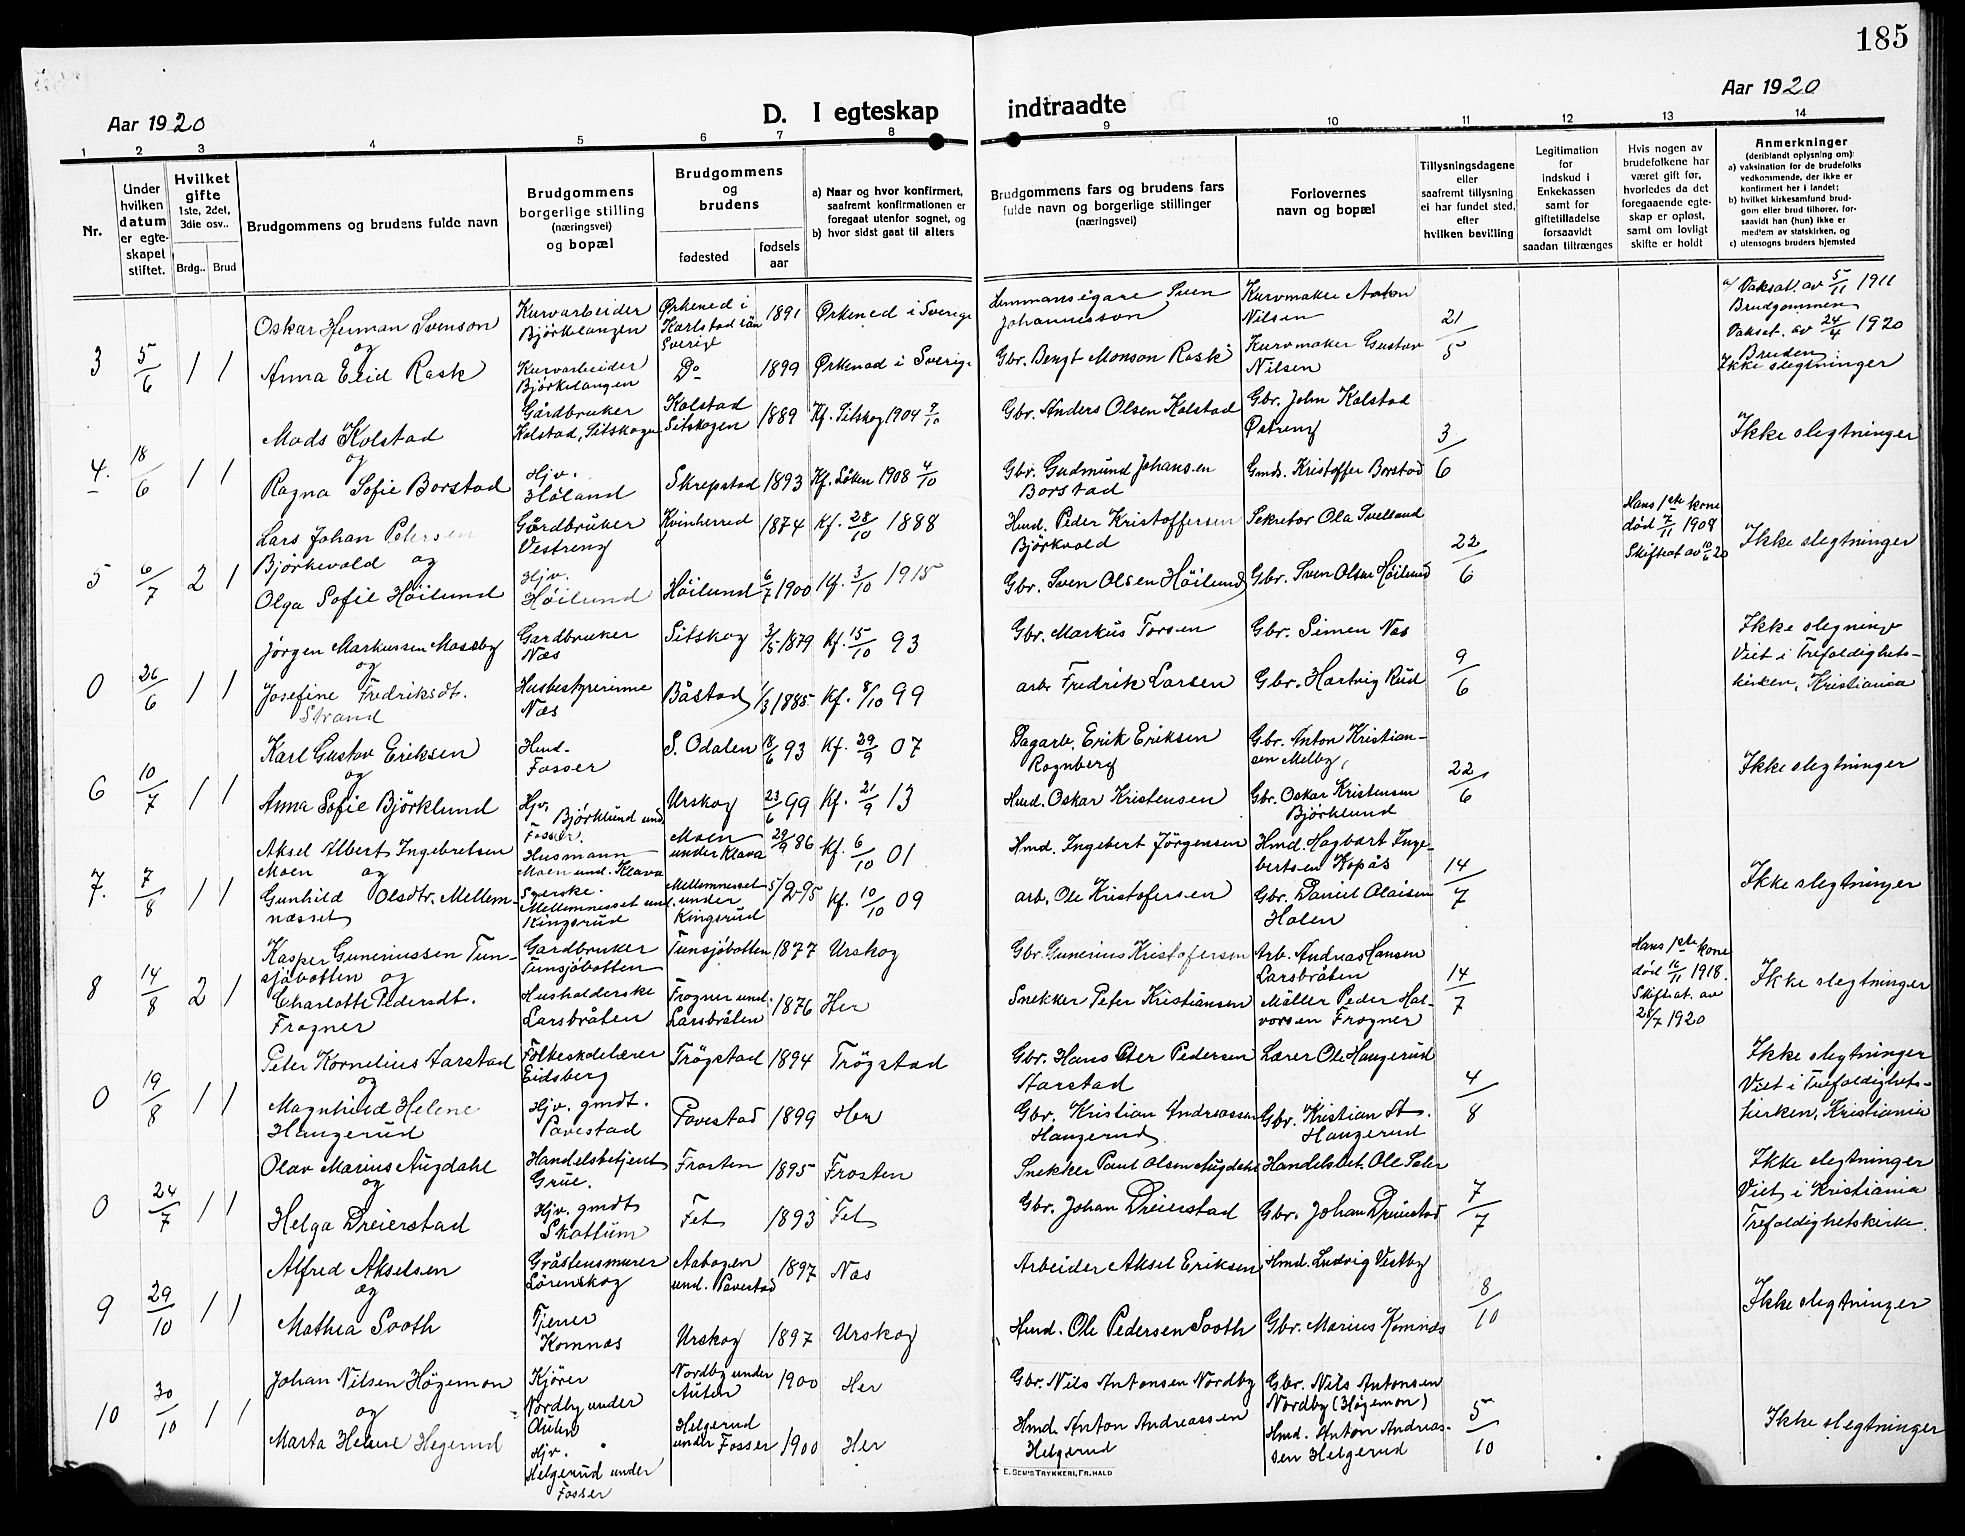 185
Aar 1920
D. I egteskap indtraadte
Aar 1920
1 2 3 4 5 6 7 8 9 10 11 12 13 14
Nr.
Under hvilken datum er egteskapet stiftet.
Hvilket gifte 1ste, 2det, 3die osv..
Brdg.. Brud
Brudgommens og brudens fulde navn
Brudgommens borgerlige stilling (næringsvei) og bopæl
Brudgommens og brudens
fødested
fødsels aar
a) Naar og hvor konfirmert, saafremt konfirmationen er foregaat utenfor sognet, og
b) hvor sidst gaat til alters
Brudgommens fars og brudens fars fulde navn og borgerlige stillinger (næringsvei)
Forlovernes navn og bopæl
Tillysningsdagene eller saafremt tillysning ei har fundet sted, efter hvilken bevilling
Legitimation for indskud i Enkekassen samt for giftetilladelse forsaavidt saadan tiltrænges
Hvis nogen av brudefolkene har været gift før, hvorledes da det foregaaende egteskap er opløst, samt om lovligt skifte er holdt
Anmerkninger (deriblandt oplysning om):
a) vaksination for de brudefolks vedkommende, der ikke er konfirmert her i landet;
b) hvilket kirkesamfund brudgom eller brud tilhører, forsaavidt han (hun) ikke er medlem av statskirken, og
c) utensogns bruders hjemsted
3 5/6 1 1
Oskar Herman Svenson Kurvarbeider Bjørkelangen Ørkened i Karlstad län Sverig 1891 Ørkened i Sverige Hemmansegare Sven Johannesson Kurvmaker Anton Nilsen 21/5 a/ Vaksat. av 5/11 1911 Brudgommen
og
Anna Elid Rask Kurvarbeider Bjørkelangen Do 1899 Ørkenad i Sverige Gbr. Bengt Monson Rask Kurvmaker Gustav Nilsen Vaksat. av 24/4 1920 Bruden Ikke slegtninger
4. 18/6 1 1
Mads Kolstad Gårdbruker Kolstad, Sitskogen Kolstad Sitskogen 1889 Kf. Sitskog 1904 9/10 Gbr. Anders Olsen Kolstad Gbr. John Kolstad Østreng 3/6 Ikke slegtninger
og
Ragna Sofie Borstad Hjv. Høland Skrepstad 1893 Kf. Løken 1908 4/10 Gbr. Gudmund Johansen Borstad Gmds. Kristoffer Borstad
5 6/7 2 1
Lars Johan Petersen Bjørkevold og Gårdbruker Vestreng Kvinherred 1874 Kf. 28/10 1888 Hmd. Peder Kristoffersen Bjørkvold Sekretær Ola Svelland 22/6 Hans 1ste kone død 7/11 1908 Skifteat av 10/6 20 Ikke slegtninger
Olga Sofie Høilund Hjv. Høilund Høilund 6/7 1900 Kf. 3/10 1915 Gbr. Sven Olsen Høilund Gbr. Sven Olsen Høilund
0 26/6 1 1
Jørgen Markussen Mosseby Gardbruker Næs Sitskog 3/5 1879 Kf. 15/10 93 Gbr. Markus Torsen Gbr. Simen Næs 9/6 Ikke slegninge
og
Josefine Fredriksdt. Strand Husbestyrerinne Næs Båstad 1/3 1885 Kf. 8/10 99 arb. Fredrik Larsen Gbr. Hartvig Rud Viet i Trefoldighets-kirken, Kristiania
6 10/7 1 1
Karl Gustav Eriksen Hmd. Fosser S. Odalen 18/6 93 Kf. 29/9 07 Dagarb. Erik Eriksen Rognberg Gbr. Anton Kristiansen Melby, 22/6 Ikke slegtninger
og
Anna Sofie Bjørklund Hjv. Bjørklund und Fosser. Urskog 23/6 99 Kf. 21/9 13 Hmd. Oskar Kristensen Gbr. Oskar Kristensen Bjørklund
7. 7/8 1 1
Aksel Albert Ingebretsen Moen og Husmann Moen und. Klava Moen under Klava 29/9 86 Kf. 6/10 01 Hmd. Ingebert Jørgensen Hmd. Hagbart Ingebertsen Kopås 14/7 Ikke slegtninger
Gunhild Olsdtr. Mellemnæsset Syerske. Mellemnesset und. Kingsrud Mellemnesset under Kingsrud 5/12-95 Kf. 10/10 09 arb. Ole Kristofersen Gbr. Daniel Olaisen Holen
8 14/8 2 1
Kasper Gunerussen Tunsjøbotten og Gardbruker Tunsjøbotten Tunsjøbotten 1877 Urskog Gbr. Gunerius Kristofersen Arb. Andreas Hansen Larsbråten 14/7 Hans 1ste kone død 16/11 1918. Skifteat. av 28/7 1920 Ikke slegtninger
Charlotte Pedersdt. Frogner Husholderske Larsbråten Frogner und. Larsbråten 1876 Her Snekker Peter Kristiansen Møller Peder Halvorsen Frogner
0 19/8 1 1
Peter Kornelius Aarstad Folkeskolelærer Eidsberg Trøgstad 1894 Trøgstad Gbr. Hans Peter Pedersen Aarstad Lærer Ole Haugerud 4/8 Ikke slegtninger
og
Magnhild Helene Haugerud Hjv. gmdt. Povestad Povestad 1899 Her Gbr. Kristian Andreassen Haugerud Gbr. Kristian A. Haugerud Viet i Trefoldighets-kirken, Kristiania
0 24/7 1 1
Olav Marius Augdahl Handelsbetjent Grue. Frosten 1895 Frosten Snekker Paul Olsen Augdahl Handelsbet. Ole Sæter 7/7 Ikke slegtninger
og
Helga Dreierstad Hjv. gmdt Skattum Fet 1893 Fet Gbr. Johan Dreierstad Gbr. Johan Dreierstad Viet i Kristiania Trefoldighetskirke.
9 29/10 1 1
Alfred Akselsen Gråstensmurer Lørenskog Aabogen und. Pavestad 1897 Næs Arbeider Aksel Eriksen Hmd. Ludvig Vestby 8/10 Ikke slegtninger
og
Mathea Sooth Tjener Komnæs Urskog 1897 Urskog Hmd. Ole Pedersen Sooth Gbr. Marius Komnæs
10 30/10 1 1
Johan Nilsen Høgemon Kjører Nordby under Auten Nordby under Auten 1900 Her Gbr. Nils Antonsen Nordby Gbr. Nils Antonsen Nordby (Høgemon) 5/10 Ikke slegtninger
og
Marta Helene Hegerud Hjv. Helgerud under Fosser Helgerud under Fosser 1900 Her Hmd. Anton Andreassen Helgerud Hmd. Anton Andreassen Helgerud
E. SEM'S TRYKKERI, FR.HALD